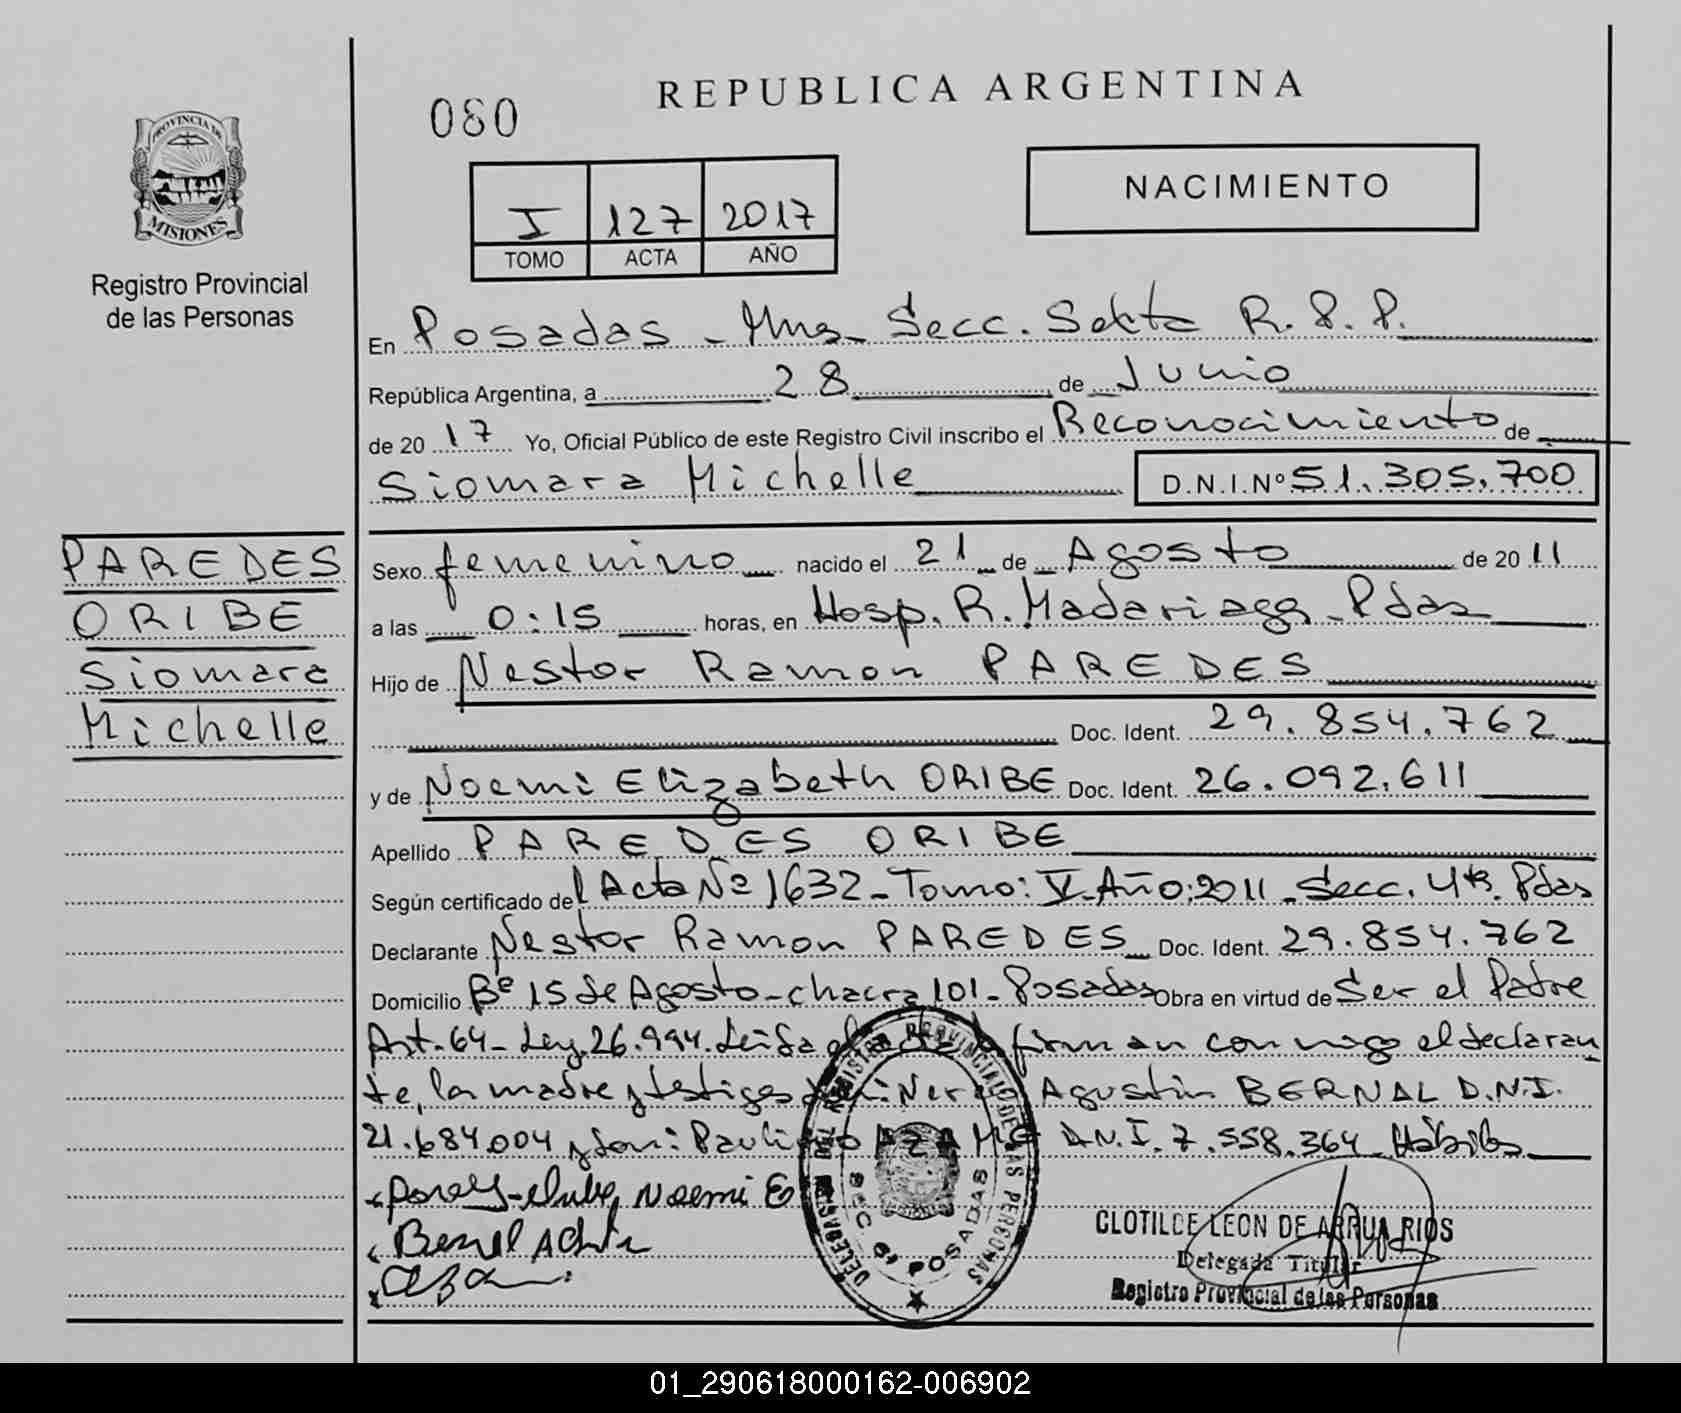 REPUBLICA ARGENTINA
080
PROVINCIA DE
MISIONES
Registro Provincial
de las Personas
I 127 2017
TOMO ACTA AÑO
NACIMIENTO
En Posadas - Mns - Secc. Sexta R.P.P.
República Argentina, a 28 de Junio
de 2017 Yo, Oficial Público de este Registro Civil inscribo el Reconocimiento de
Siomara Michelle D.N.I.Nº 51.305.700
PAREDES
ORIBE
Siomara
Michelle
Sexo femenino nacido el 21 de Agosto de 2011
a las 0:15 horas, en Hosp. R. Madariaga - Pdas
Hijo de Nestor Ramon PAREDES
Doc. Ident. 29.854.762
y de Noemi Elizabeth ORIBE Doc. Ident. 26.092.611
Apellido PAREDES ORIBE
Según certificado del Acta Nº 1632 - Tomo: V - Año: 2011 - Secc. 4ta Pdas
Declarante Nestor Ramon PAREDES Doc. Ident. 29.854.762
Domicilio Bº 15 de Agosto - chacra 101 - Posadas Obra en virtud de Ser el Padre
Art. 64 - Ley 26.994. Leida el acta firman conmigo el declaran
te, la madre y testigos Agustin BERNAL D.N.I.
21.684.004 y don: D.N.I. 7.558.364 Hábiles
Noemi E
CLOTILDE LEON DE ARRUA RIOS
Delegada Titular
Registro Provincial de las Personas
DELEGASI DEL REGISTRO PROVINCIAL DE LAS PERSONAS
SEC 6ª POSADAS
01_290618000162-006902